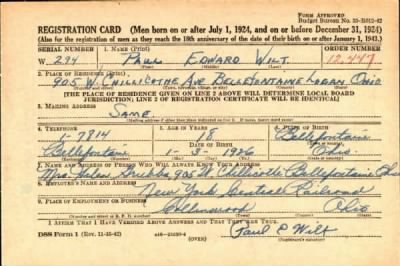 FORM APPROVED
Budget Bureau No. 33-R012-42
REGISTRATION CARD (Men born on or after July 1, 1924, and on or before December 31, 1924)
(Also for the registration of men as they reach the 18th anniversary of the date of their birth on or after January 1, 1943.)
SERIAL NUMBER 1. NAME (Print) ORDER NUMBER
W 294 PAUL EDWARD WILT 12,447
2. PLACE OF RESIDENCE (Print)
905 W. CHILLICOTHE AVE BELLEFONTAINE LOGAN OHIO
[THE PLACE OF RESIDENCE GIVEN ON LINE 2 ABOVE WILL DETERMINE LOCAL BOARD
JURISDICTION; LINE 2 OF REGISTRATION CERTIFICATE WILL BE IDENTICAL]
3. MAILING ADDRESS
SAME
4. TELEPHONE 5. AGE IN YEARS 6. PLACE OF BIRTH
1-7814 18 Bellefontaine
DATE OF BIRTH
Bellefontaine 1-3-1926 Ohio
7. NAME AND ADDRESS OF PERSON WHO WILL ALWAYS KNOW YOUR ADDRESS
Mrs. Helen 905 W. Chillicothe Bellefontaine Ohio
8. EMPLOYER'S NAME AND ADDRESS
New York Central Railroad
9. PLACE OF EMPLOYMENT OR BUSINESS
Collinwood Ohio
I AFFIRM THAT I HAVE VERIFIED ABOVE ANSWERS AND THAT THEY ARE TRUE.
DSS FORM 1 (Rev. 11-16-42) (OVER) Paul E Wilt
(Registrant's signature)